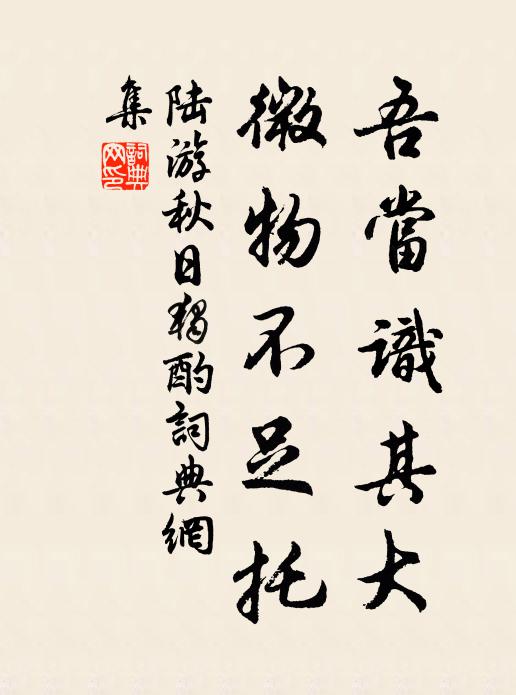 吾當識其大
微物不足托
陆游秋日獨酌詞典網
集
詞典網印